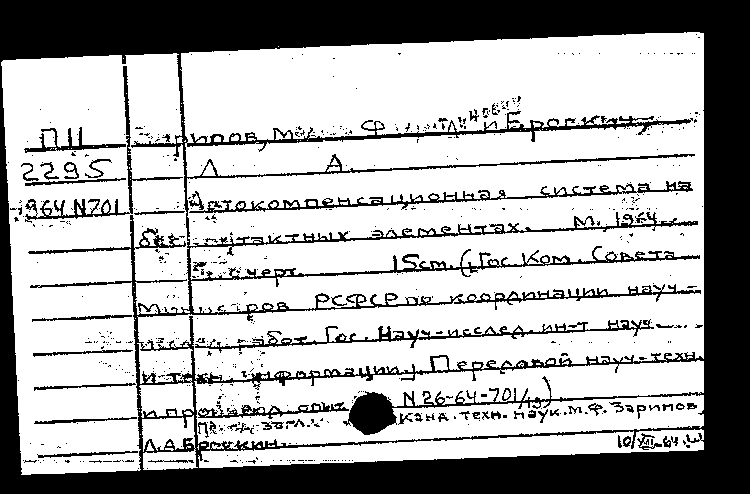 П11 Зарипов, М. Ф. и Броскин,
2295 Л. А.
1964 N701 Автокомпенсационная система на
бесконтактных элементах. М., 1964.
с. с черт. 15см. (Гос. Ком. Совета
Министров РСФСР по координации науч.-
исслед. работ. Гос. Науч-исслед. ин-т науч.
и техн. информации). Передовой науч-техн.
и производ. опыт N 26-64-701/19)
Перед загл.: Канд. техн. наук. М.Ф. Зарипов,
Л.А. Броскин.
10/XII-64